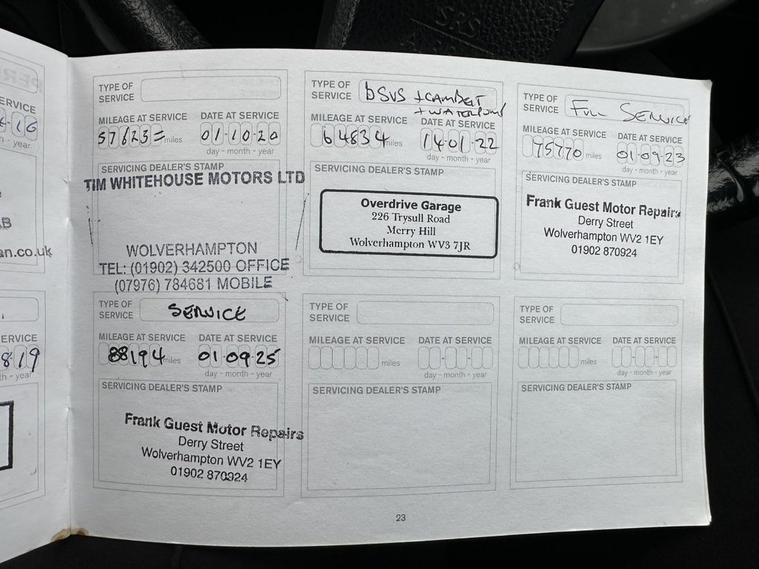 SRS
ERVICE
6-16
th - year
AB
an.co.uk
ERVICE
819
th - year
TYPE OF
SERVICE
MILEAGE AT SERVICE DATE AT SERVICE
57623= miles 01-10-20
day - month - year
SERVICING DEALER'S STAMP
TIM WHITEHOUSE MOTORS LTD
WOLVERHAMPTON
TEL: (01902) 342500 OFFICE
(07976) 784681 MOBILE
TYPE OF
SERVICE bSVS + CAMBELT
+ WATERPUMP
MILEAGE AT SERVICE DATE AT SERVICE
64834 miles 14-01-22
day - month - year
SERVICING DEALER'S STAMP
Overdrive Garage
226 Trysull Road
Merry Hill
Wolverhampton WV3 7JR
TYPE OF
SERVICE FULL SERVICE
MILEAGE AT SERVICE DATE AT SERVICE
75770 miles 01-09-23
day - month - year
SERVICING DEALER'S STAMP
Frank Guest Motor Repairs
Derry Street
Wolverhampton WV2 1EY
01902 870924
TYPE OF
SERVICE SERVICE
MILEAGE AT SERVICE DATE AT SERVICE
88194 miles 01-09-25
day - month - year
SERVICING DEALER'S STAMP
Frank Guest Motor Repairs
Derry Street
Wolverhampton WV2 1EY
01902 870924
TYPE OF
SERVICE
MILEAGE AT SERVICE DATE AT SERVICE
miles
day - month - year
SERVICING DEALER'S STAMP
TYPE OF
SERVICE
MILEAGE AT SERVICE DATE AT SERVICE
miles
day - month - year
SERVICING DEALER'S STAMP
23